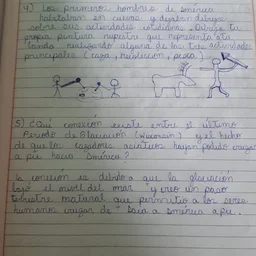 4) Los primeros hombres de América
habitaban en cuevas y dejaban dibujos
sobre sus actividades cotidianas. Dibuja tu
propia pintura rupestre que represente esta
realizando alguna de las tres actividades
principales (caza, recolección, pesca)
5) ¿Qué conexión existe entre el último
Periodo de Glaciación (Wisconsin) y el hecho
de que los cazadores asiáticos hayan podido cruzar
a pie hacia América?
La conexión es debido a que la glaciación
bajó el nivel del mar y creó un paso
terrestre natural que permitió a los seres
humanos cruzar de Asia a América a pie.